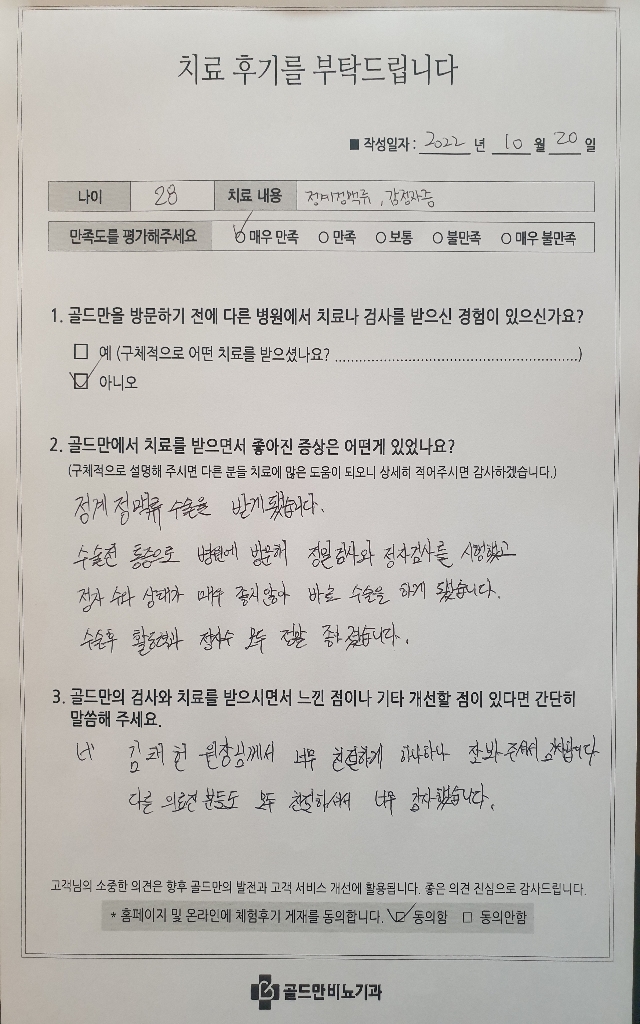 치료 후기를 부탁드립니다
■ 작성일자 : 2022 년 10 월 20 일
나이 28 치료 내용 정계정맥류, 감정자증
만족도를 평가해주세요 매우 만족 만족 보통 불만족 매우 불만족
1. 골드만을 방문하기 전에 다른 병원에서 치료나 검사를 받으신 경험이 있으신가요?
예 (구체적으로 어떤 치료를 받으셨나요? )
아니오
2. 골드만에서 치료를 받으면서 좋아진 증상은 어떤게 있었나요?
(구체적으로 설명해 주시면 다른 분들 치료에 많은 도움이 되오니 상세히 적어주시면 감사하겠습니다.)
정계정맥류 수술을 받게됐습니다.
수술전 통증으로 병원에 방문해 정밀검사와 정자검사를 시행했고
정자 수나 상태가 매우 좋지않아 바로 수술을 하게 됐습니다.
수술후 활동성과 정자수 모두 정말 좋아졌습니다.
3. 골드만의 검사와 치료를 받으시면서 느낀 점이나 기타 개선할 점이 있다면 간단히
말씀해 주세요.
네 원장님께서 너무 친절하게 하나하나 잘 봐주셔서 감사합니다
다른 의료진 분들도 모두 친절하셔서 너무 감사했습니다.
고객님의 소중한 의견은 향후 골드만의 발전과 고객 서비스 개선에 활용됩니다. 좋은 의견 진심으로 감사드립니다.
* 홈페이지 및 온라인에 체험후기 게재를 동의합니다. 동의함 동의안함
골드만비뇨기과